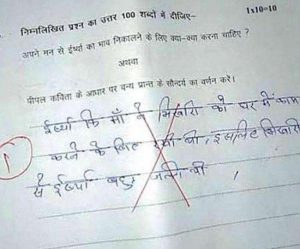 निम्नलिखित प्रश्न का उत्तर 100 शब्दों में दीजिए– 1x10=10
अपने मन से ईर्ष्या का भाव निकालने के लिए क्या-क्या करना चाहिए ?
अथवा
पीपल कविता के आधार पर वन्य प्रान्त के सौन्दर्य का वर्णन करें।
ईर्ष्या कि माँ ने भिखारी को घर में काम
करने के लिए रखी थी, इसलिए भिखारी
से ईर्ष्या बहु जलती थी